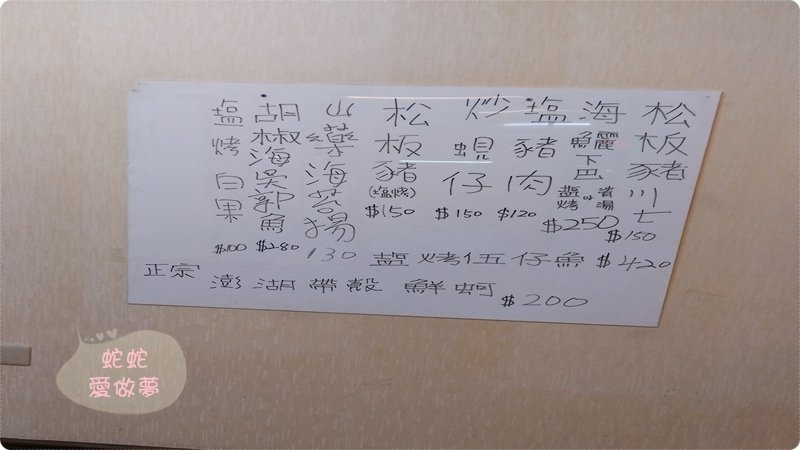 松板豬川七
$150
海鱺下巴
鹽烤 or 清湯
$250
塩豬肉
$120
炒蜆仔
$150
松板豬
(塩烤)
$150
山藥海苔揚
130
胡椒海吳郭魚
$280
塩烤白果
$100
鹽烤伍仔魚 $420
正宗 澎湖帶殼 鮮蚵 $200
蛇蛇
愛做夢